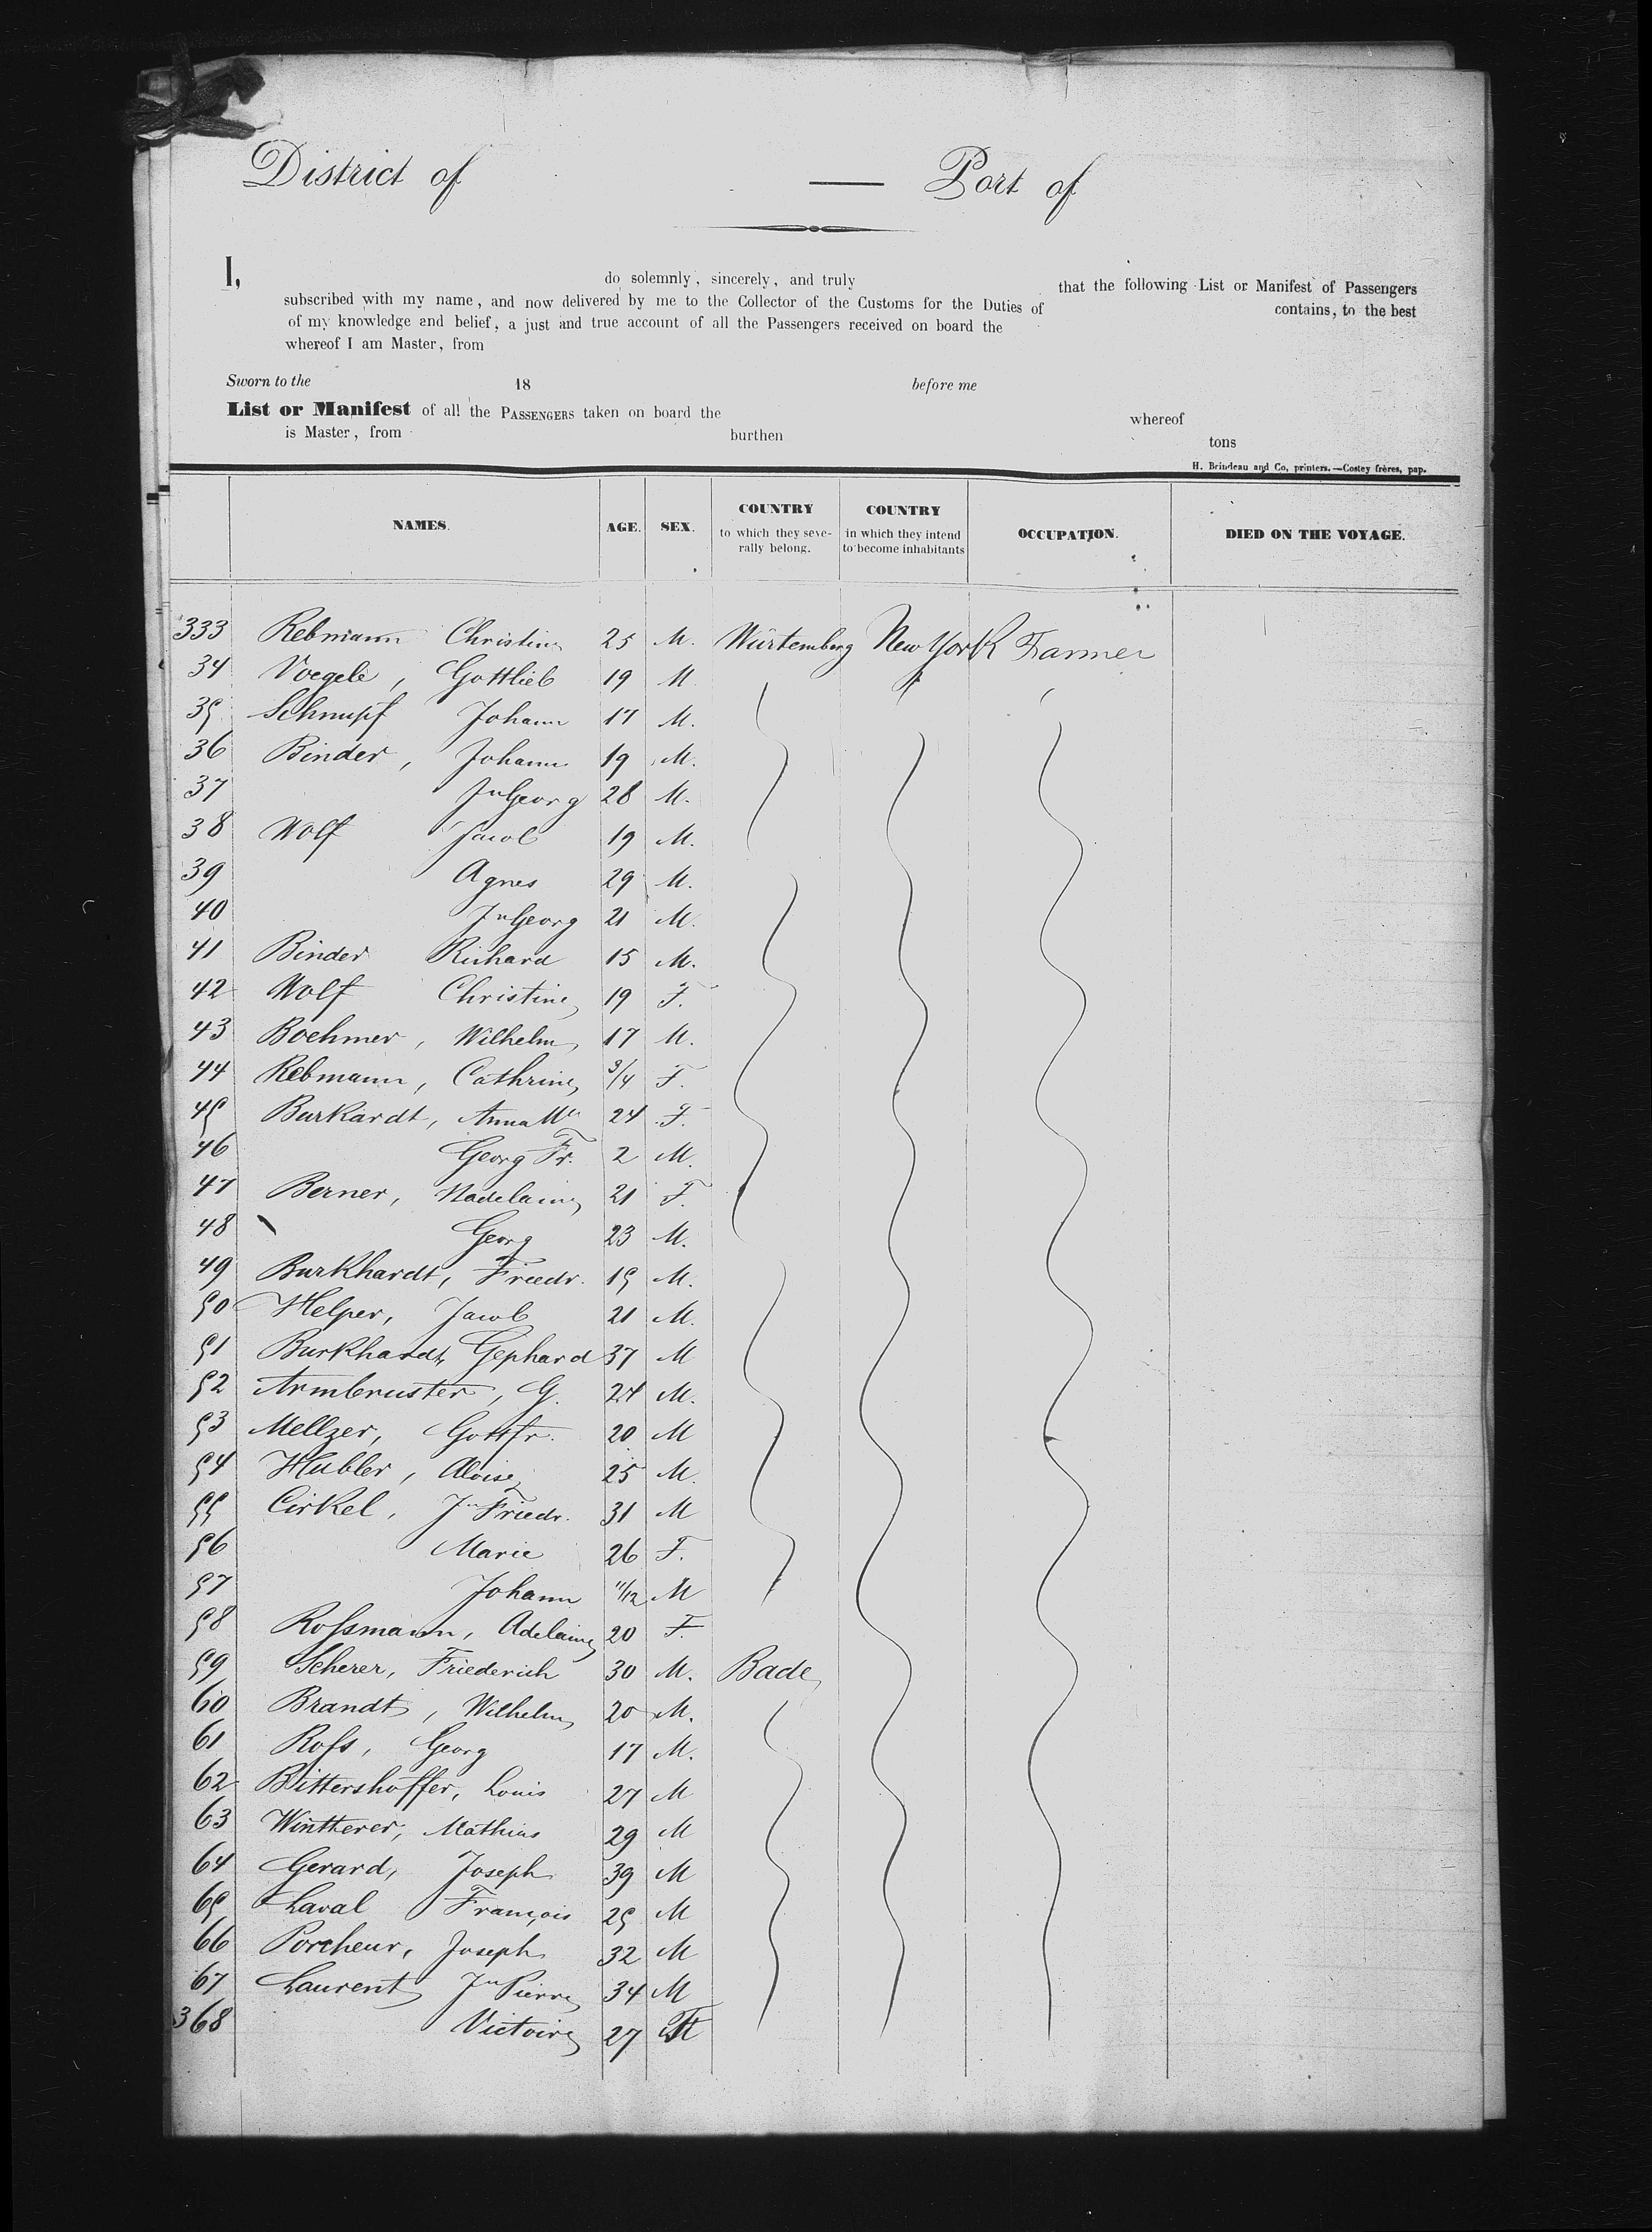 District of — Port of
I, do solemnly, sincerely, and truly that the following List or Manifest of Passengers
subscribed with my name, and now delivered by me to the Collector of the Customs for the Duties of contains, to the best
of my knowledge and belief, a just and true account of all the Passengers received on board the
whereof I am Master, from
Sworn to the 18 before me
List or Manifest of all the PASSENGERS taken on board the whereof
is Master, from burthen tons
H. Brindeau and Co, printers.—Costey frères, pap.
NAMES. AGE. SEX. COUNTRY to which they seve- rally belong. COUNTRY in which they intend to become inhabitants OCCUPATION. DIED ON THE VOYAGE.
333 Rebmann Christine 25 M. Würtemberg New York Farmer
34 Voegele, Gottlieb 19 M
35 Schnupf Johann 17 M.
36 Binder, Johann 19 M.
37 Jn Georg 28 M.
38 Wolf Jacob 19 M.
39 Agnes 29 M.
40 Jn Georg 21 M.
41 Binder Richard 15 M.
42 Wolf Christine 19 F.
43 Boehmer, Wilhelm 17 M.
44 Rebmann, Cathrine 3/4 F.
45 Burkardt, Anna Me 24 F.
46 Georg Fr. 2 M.
47 Berner, Madelaine 21 F.
48 Georg 23 M.
49 Burkhardt, Friedr. 15 M.
50 Helper, Jacob 21 M.
51 Burkhardt, Gephard 37 M
52 Armbruster, G. 24 M.
53 Mellzer, Gottfr. 20 M
54 Hubler, Aloise 25 M.
55 Cirkel, Jn Friedr. 31 M
56 Marie 26 F.
57 Johann 11/12 M
58 Rossmann, Adelaine 20 F.
59 Scherer, Friederich 30 M. Bade
60 Brandt, Wilhelm 20 M.
61 Ross, Georg 17 M.
62 Bittershoffer, Louis 27 M
63 Wintherer, Mathias 29 M
64 Gerard, Joseph 39 M
65 Laval François 25 M
66 Porcheur, Joseph 32 M
67 Laurent Jn Pierre 34 M
368 Victoire 27